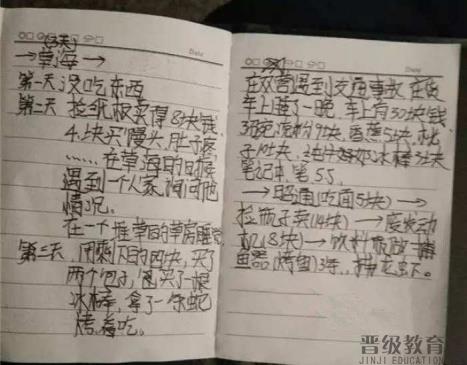 (3天)
→草海→
第一天 没吃东西
第二天 捡纸板卖得8块钱
4块买馒头,肚子疼
……在草海的时候
遇到一个人家 询问他
情况。
在一个堆草的草房睡觉
第三天,用剩下的四块,买了
两个包子,买了一根
冰棒,拿了一条蛇
烤着吃。
Date
在双营遇到交通事故 在货
车上睡了一晚,车上有30块钱
3碗凉粉9块,香蕉5块,桃
子 块,冰棒 块
笔记本,笔 5.5,
→昭通(吃面5块)→
捡瓶子卖(14块)→废发动
机(8块)→饮料瓶做捕
鱼器(烤鱼)3 ,捕龙虾。
晋级教育
JINJI EDUCATION